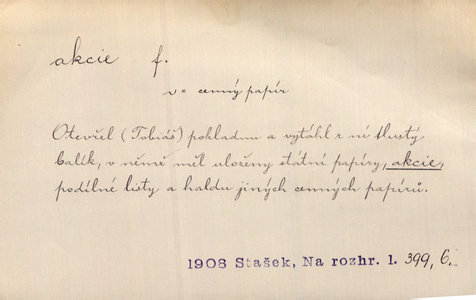 akcie f.
v= cenný papír
Otevřel (Tobiáš) pokladnu a vytáhl z ní tlustý
balík, v němž měl uloženy státní papíry, akcie,
podílné listy a haldu jiných cenných papírů.
1908 Stašek, Na rozhr. 1. 399, 6.